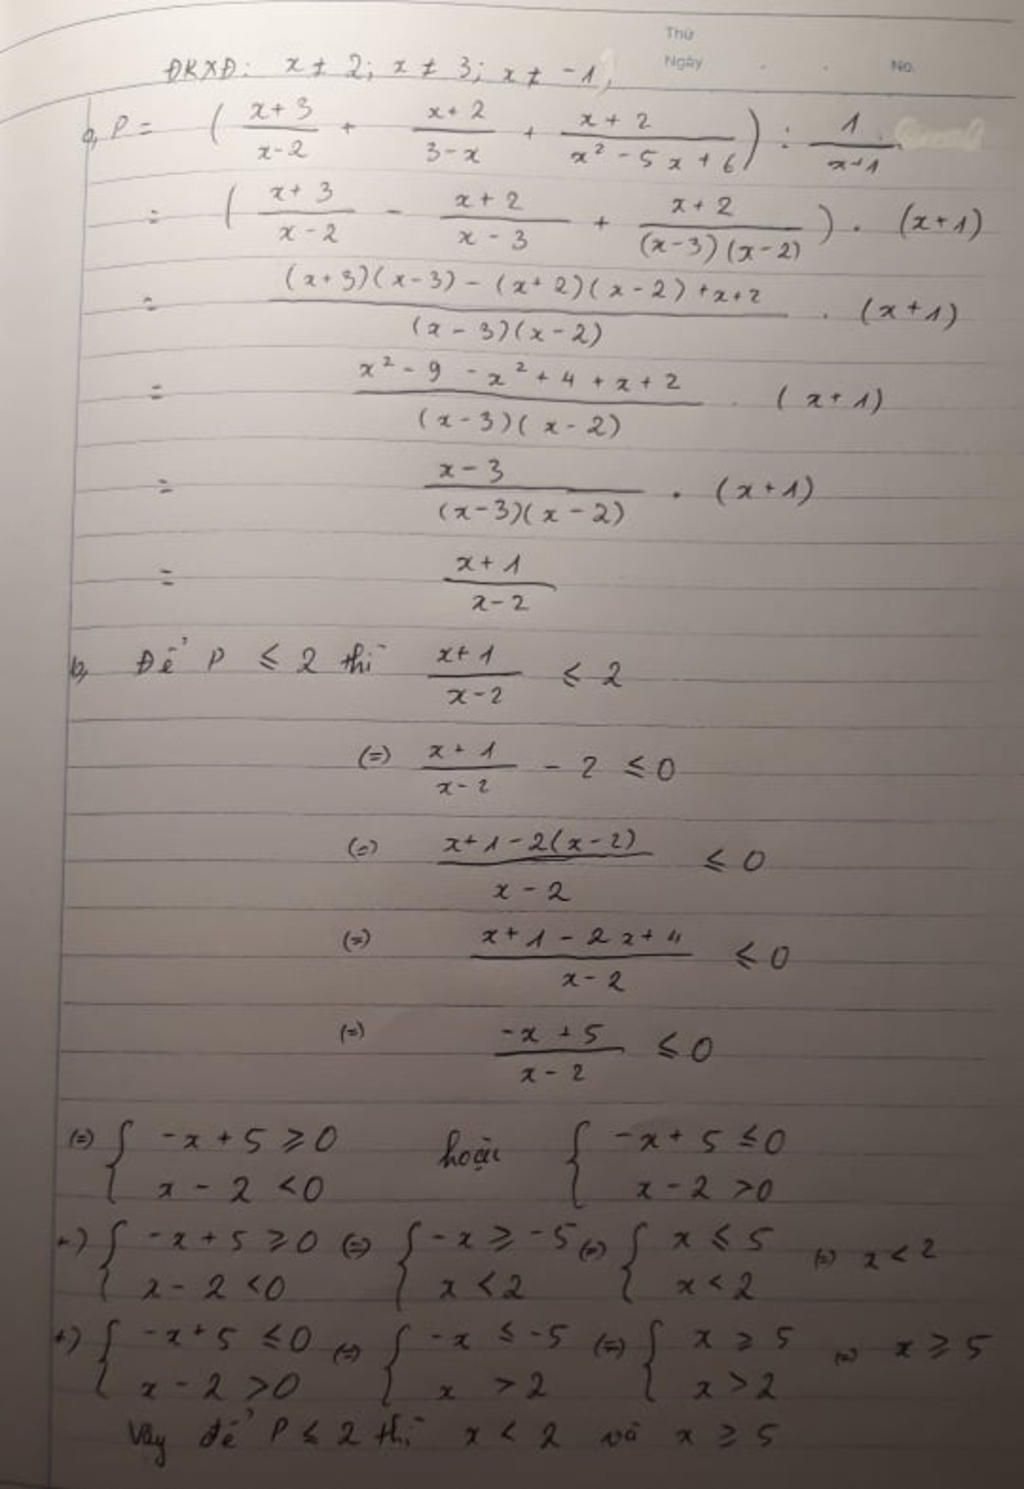 Thứ
Ngày . . No.
ĐKXĐ: x ≠ 2; x ≠ 3; x ≠ -1,
a, P = ( (x+3)/(x-2) + (x+2)/(3-x) + (x+2)/(x² - 5x + 6) ) : 1/(x+1)
= ( (x+3)/(x-2) - (x+2)/(x-3) + (x+2)/((x-3)(x-2)) ) . (x+1)
= ((x+3)(x-3) - (x+2)(x-2) + x+2)/((x-3)(x-2)) . (x+1)
= (x² - 9 - x² + 4 + x + 2)/((x-3)(x-2)) . (x+1)
= (x-3)/((x-3)(x-2)) . (x+1)
= (x+1)/(x-2)
b, Để P ≤ 2 thì (x+1)/(x-2) ≤ 2
(=) (x+1)/(x-2) - 2 ≤ 0
(=) (x+1-2(x-2))/(x-2) ≤ 0
(=) (x+1-2x+4)/(x-2) ≤ 0
(=) (-x+5)/(x-2) ≤ 0
(=) { -x+5 ≥ 0 hoặc { -x+5 ≤ 0
x-2 < 0 x-2 > 0
+) { -x+5 ≥ 0 (=) { -x ≥ -5 (=) { x ≤ 5 (=) x < 2
x-2 < 0 x < 2 x < 2
+) { -x+5 ≤ 0 (=) { -x ≤ -5 (=) { x ≥ 5 (=) x ≥ 5
x-2 > 0 x > 2 x > 2
Vậy để P ≤ 2 thì x < 2 và x ≥ 5